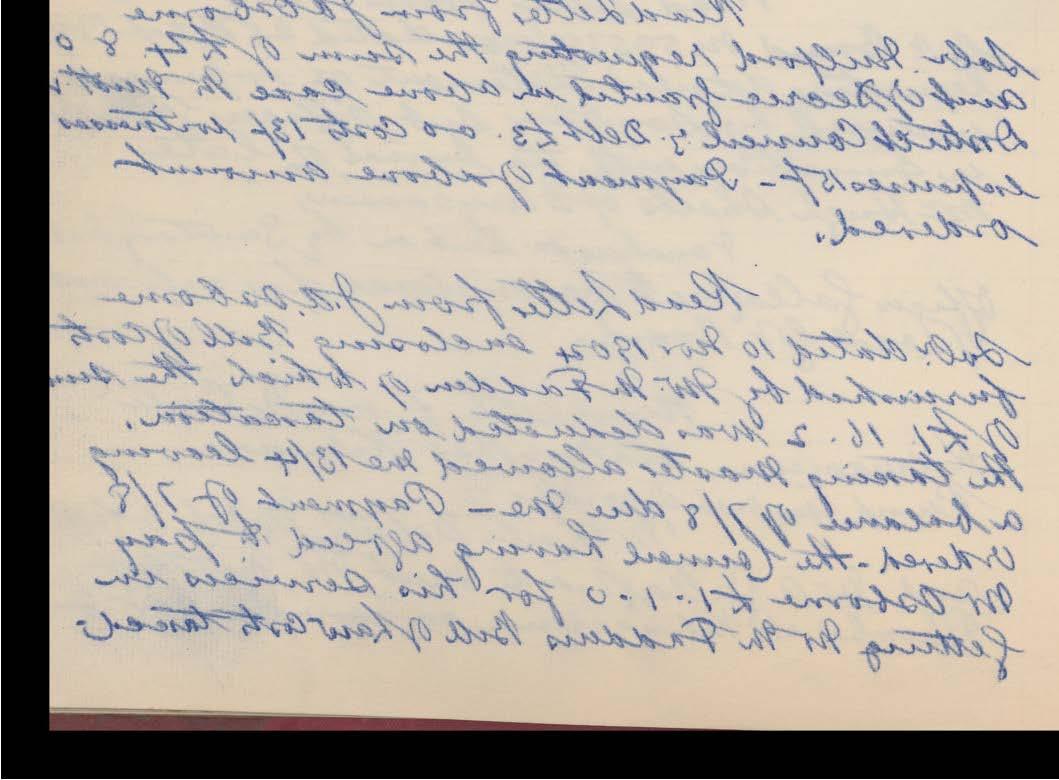 Read Letter from J A Osborne
Solr. Milford requesting the sum of £4 8 0
amt of Decree granted in above case
District Council; Debt £3. 0 0 Costs 13/4 witnesses
expenses 15/- - Payment of above amount
ordered.
Read Letter from J A Osborne
Solr. dated 10 Novr 1904 enclosing Bill of Costs
furnished by Mr McFadden of which the sum
of £1. 16. 2 was deducted on taxation.
The taxing master allowed me 13/4 leaving
a balance of 7/8 due me - Payment of 7/8
ordered - the Council having agreed to pay
Mr Osborne £1-1-0 for his services in
getting Mr McFaddens Bill of Law Costs taxed.